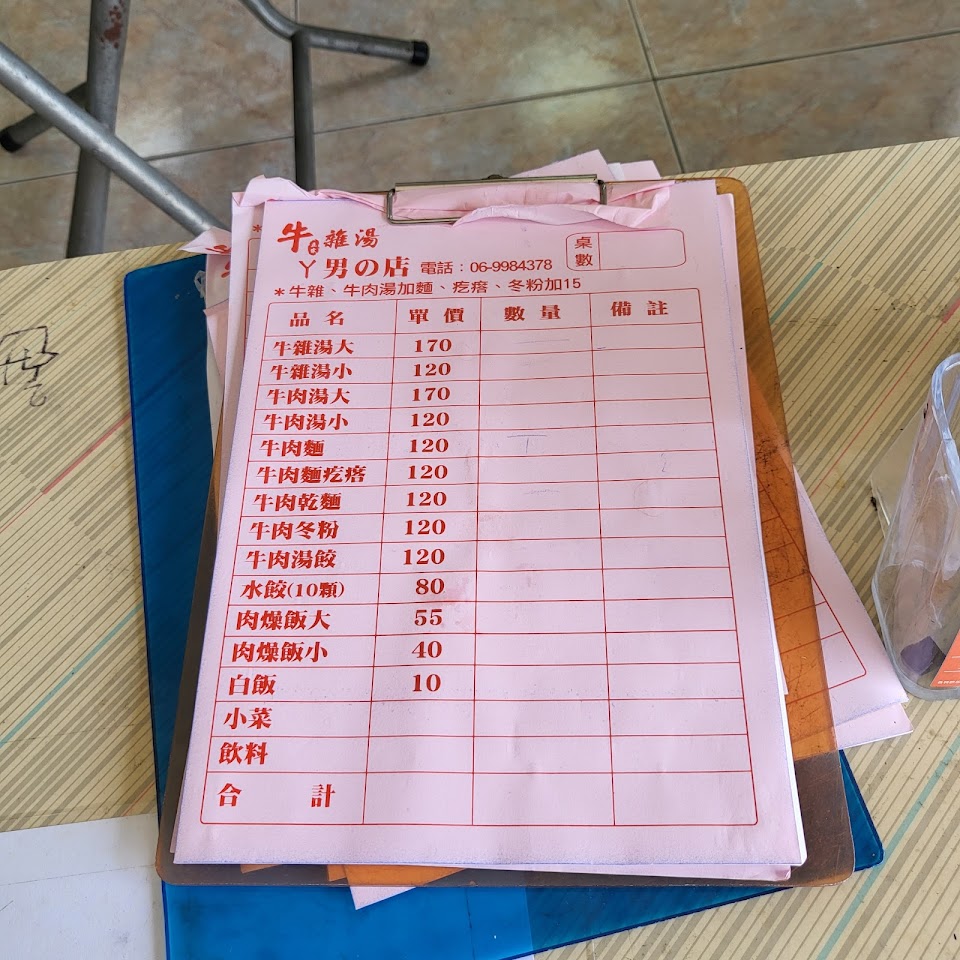 牛雜湯
ㄚ男の店 電話：06-9984378
桌數
＊牛雜、牛肉湯加麵、疙瘩、冬粉加15
品名 單價 數量 備註
牛雜湯大 170
牛雜湯小 120
牛肉湯大 170
牛肉湯小 120
牛肉麵 120
牛肉麵疙瘩 120
牛肉乾麵 120
牛肉冬粉 120
牛肉湯餃 120
水餃(10顆) 80
肉燥飯大 55
肉燥飯小 40
白飯 10
小菜
飲料
合計